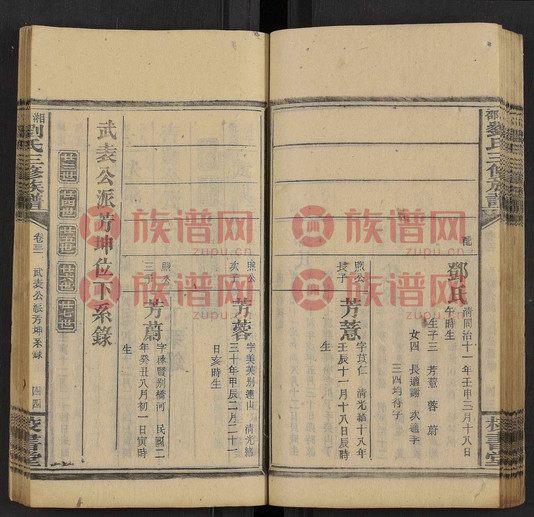 邵劉氏三修族譜
校書堂
配
鄧氏
清同治十一年壬申三月十八日
午時生
生子三 芳薏 蓉 蔚
女四 長適謝 次適李
三四均待字
照公
長子
芳薏
字苡仁 清光緒十八年
壬辰十一月十八日辰時
生
照公
次子
芳蓉
字芙美別連山 清光緒
三十年甲辰二月二十一
日亥時生
照公
三子
芳蔚
民國二
年癸丑八月初一日寅時
生
武表公派芳坤位下系錄
廿三世
廿四世
廿五世
廿六世
廿七世
湘劉氏三修族譜
武表公派芳坤系錄
四四
校書堂
族谱网
族谱网
族谱网
族谱网